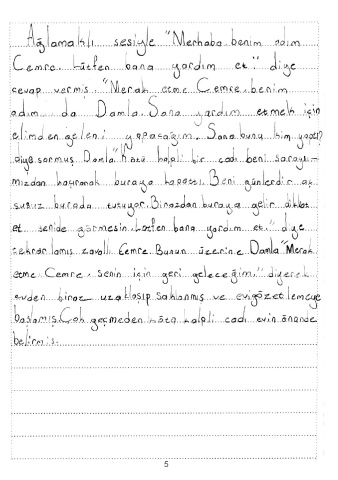 Ağlamaklı sesiyle "Merhaba benim adım
Cemre. Lütfen bana yardım et." diye
cevap vermiş. "Merak etme Cemre, benim
adım da Damla. Sana yardım etmek için
elimden geleni yapacağım. Sana bunu kim yaptı?
diye sormuş Damla. "Kötü kalpli bir cadı beni sarayı-
mızdan kaçırarak buraya kapattı. Beni günlerdir aç
susuz burada tutuyor. Birazdan buraya gelir dikkat
et senide görmesin. Lütfen bana yardım et." diye
tekrarlamış zavallı Cemre. Bunun üzerine Damla "Merak
etme Cemre, senin için geri geleceğim." diyerek
evden biraz uzaklaşıp saklanmış ve evi gözetlemeye
başlamış. Çok geçmeden kötü kalpli cadı evin önünde
belirmiş.
5